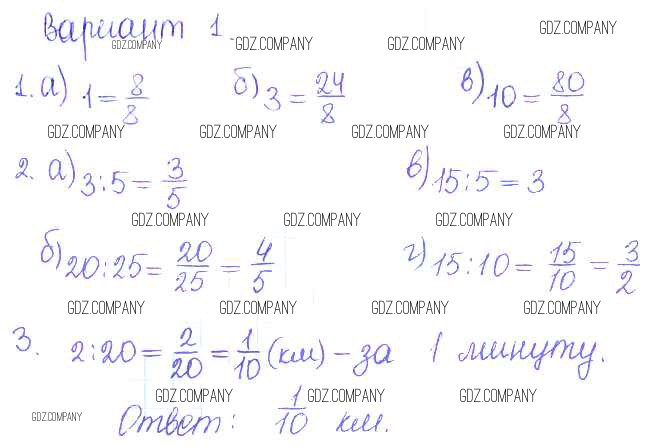 Вариант 1.
GDZ.COMPANY GDZ.COMPANY GDZ.COMPANY GDZ.COMPANY
1. а) 1 = 8/8 б) 3 = 24/8 в) 10 = 80/8
GDZ.COMPANY GDZ.COMPANY GDZ.COMPANY GDZ.COMPANY
2. а) 3:5 = 3/5 в) 15:5 = 3
GDZ.COMPANY GDZ.COMPANY GDZ.COMPANY
б) 20:25 = 20/25 = 4/5 г) 15:10 = 15/10 = 3/2
GDZ.COMPANY GDZ.COMPANY GDZ.COMPANY GDZ.COMPANY
3. 2:20 = 2/20 = 1/10 (км) – за 1 минуту.
GDZ.COMPANY GDZ.COMPANY GDZ.COMPANY GDZ.COMPANY
Ответ: 1/10 км.